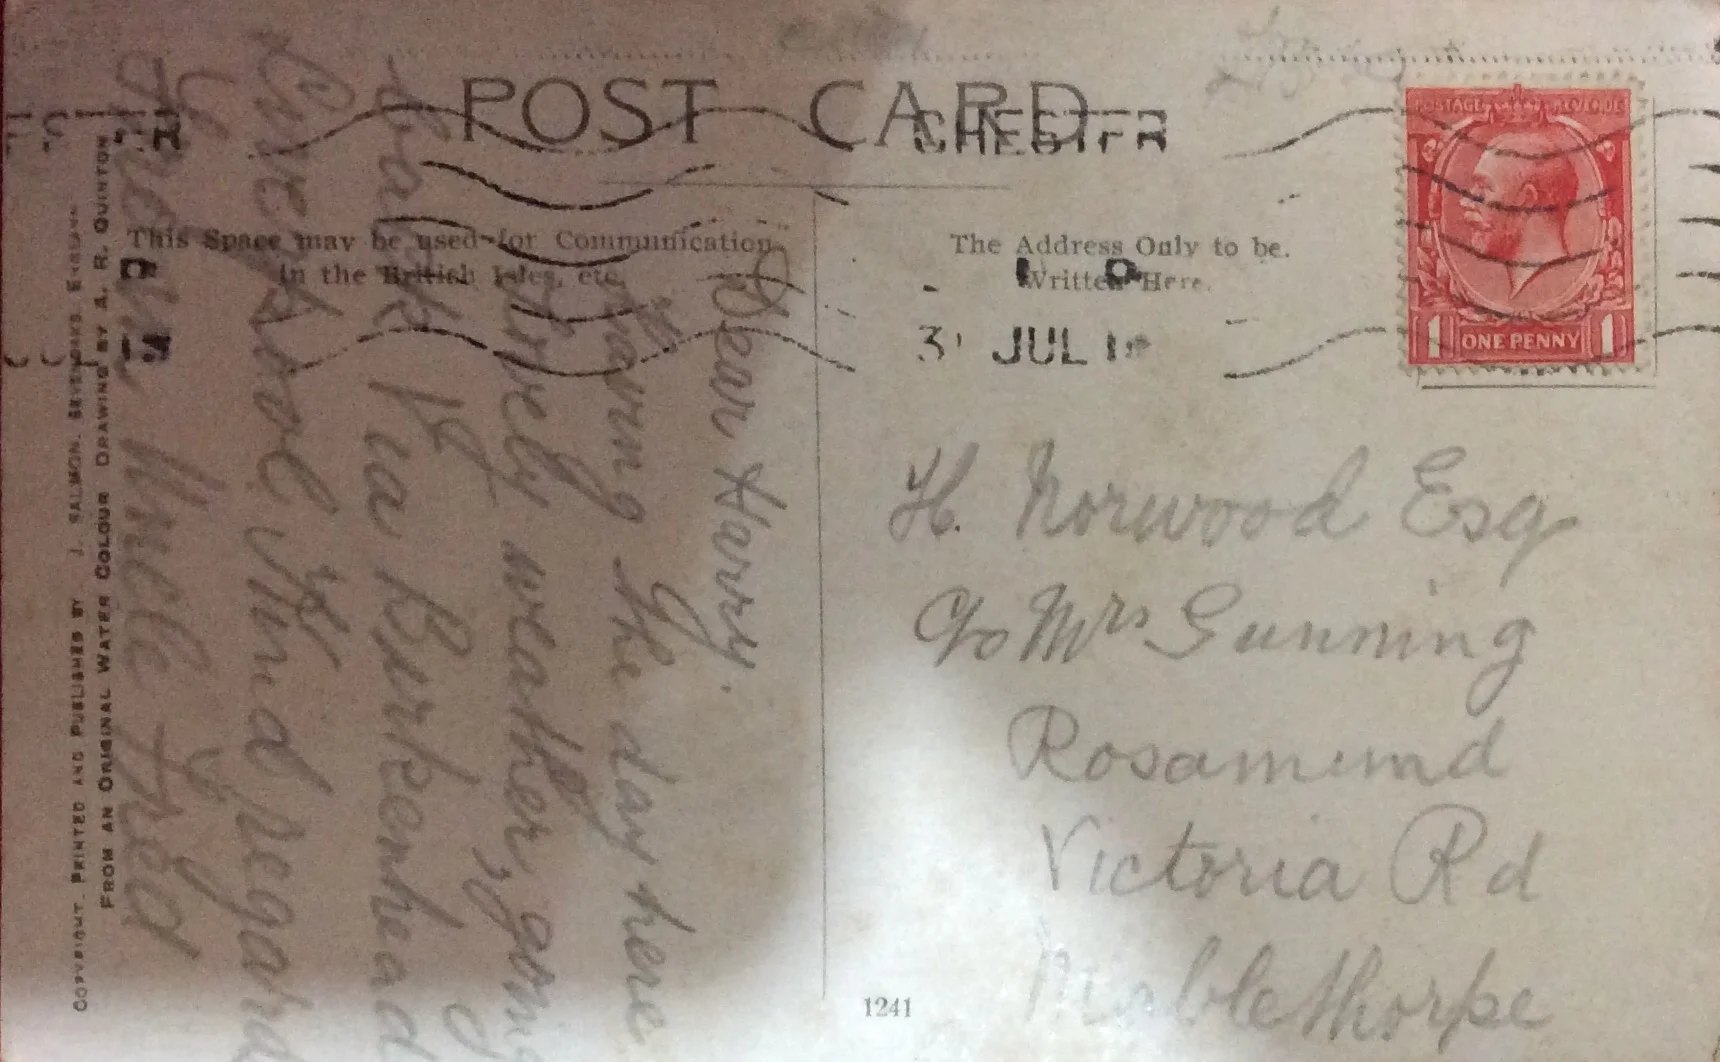 POST CARD
CHESTER
This Space may be used for Communication
in the British Isles, etc.
The Address Only to be
Written Here.
31 JUL
POSTAGE REVENUE
1 ONE PENNY 1
Dear Harry.
Having the day here
lovely weather, going
back via Birkenhead
& Liverpool Kind regards
from Uncle Fred
H. Norwood Esq
C/o Mrs Gunning
Rosamund
Victoria Rd
Mablethorpe
1241
COPYRIGHT. PRINTED AND PUBLISHED BY J. SALMON. SEVENOAKS. ENGLAND
FROM AN ORIGINAL WATER COLOUR DRAWING BY A. R. QUINTON